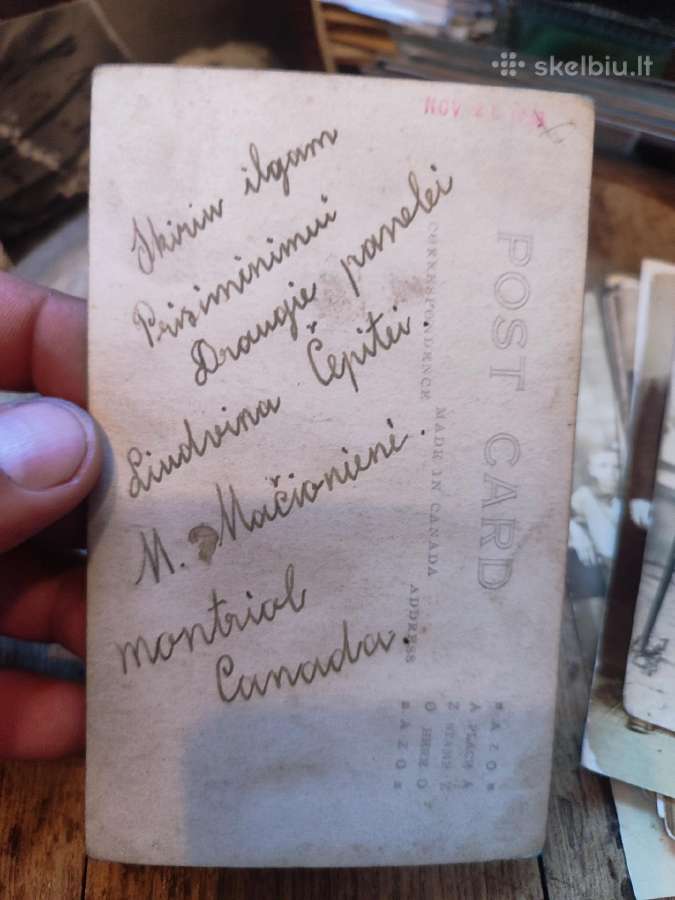 skelbiu.lt
NOV
Skiriu ilgam
Prisiminimui
Draugie panelei
Liudvina Čepitei.
M. Mačionienė.
montrial
Canada.
POST CARD
CORRESPONDENCE MADE IN CANADA
ADDRESS
AZO
PLACE
STAMP
HERE
AZO